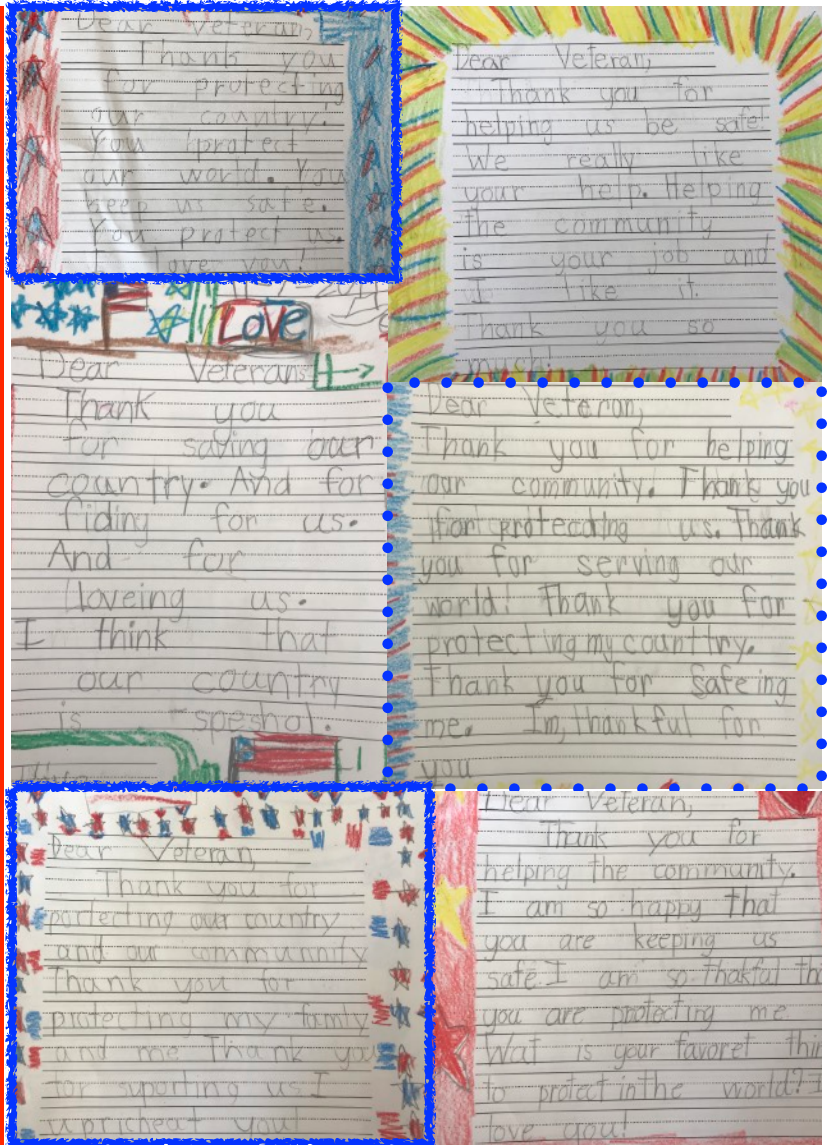 Dear Veteran,
Thank you
for protecting
our country.
You protect
our world. You
keep us safe.
You protect us.
I love you!
Dear Veteran,
Thank you for
helping us be safe!
We really like
your help. Helping
the community
is your job and
I like it.
Thank you so
much!
LOVE
Dear Veterans
Thank you
for saving our
country. And for
fiding for us.
And for
loveing us.
I think that
our country
is speshol.
Dear Veteran,
Thank you for helping
our community. Thank you
for protecding us. Thank
you for serving our
world! Thank you for
protecting my counttry.
Thank you for safeing
me. Im, thankful for
you
Dear Veteran,
Thank you for
portecting our country
and our communnity
Thank you for
protecting my famly
and me Thank you
for suporting us I
upricheat you!
Dear Veteran,
Thank you for
helping the community.
I am so happy that
you are keeping us
safe. I am so thakful tha
you are protecting me.
Wat is your favoret thin
to protect in the world? I
love you!